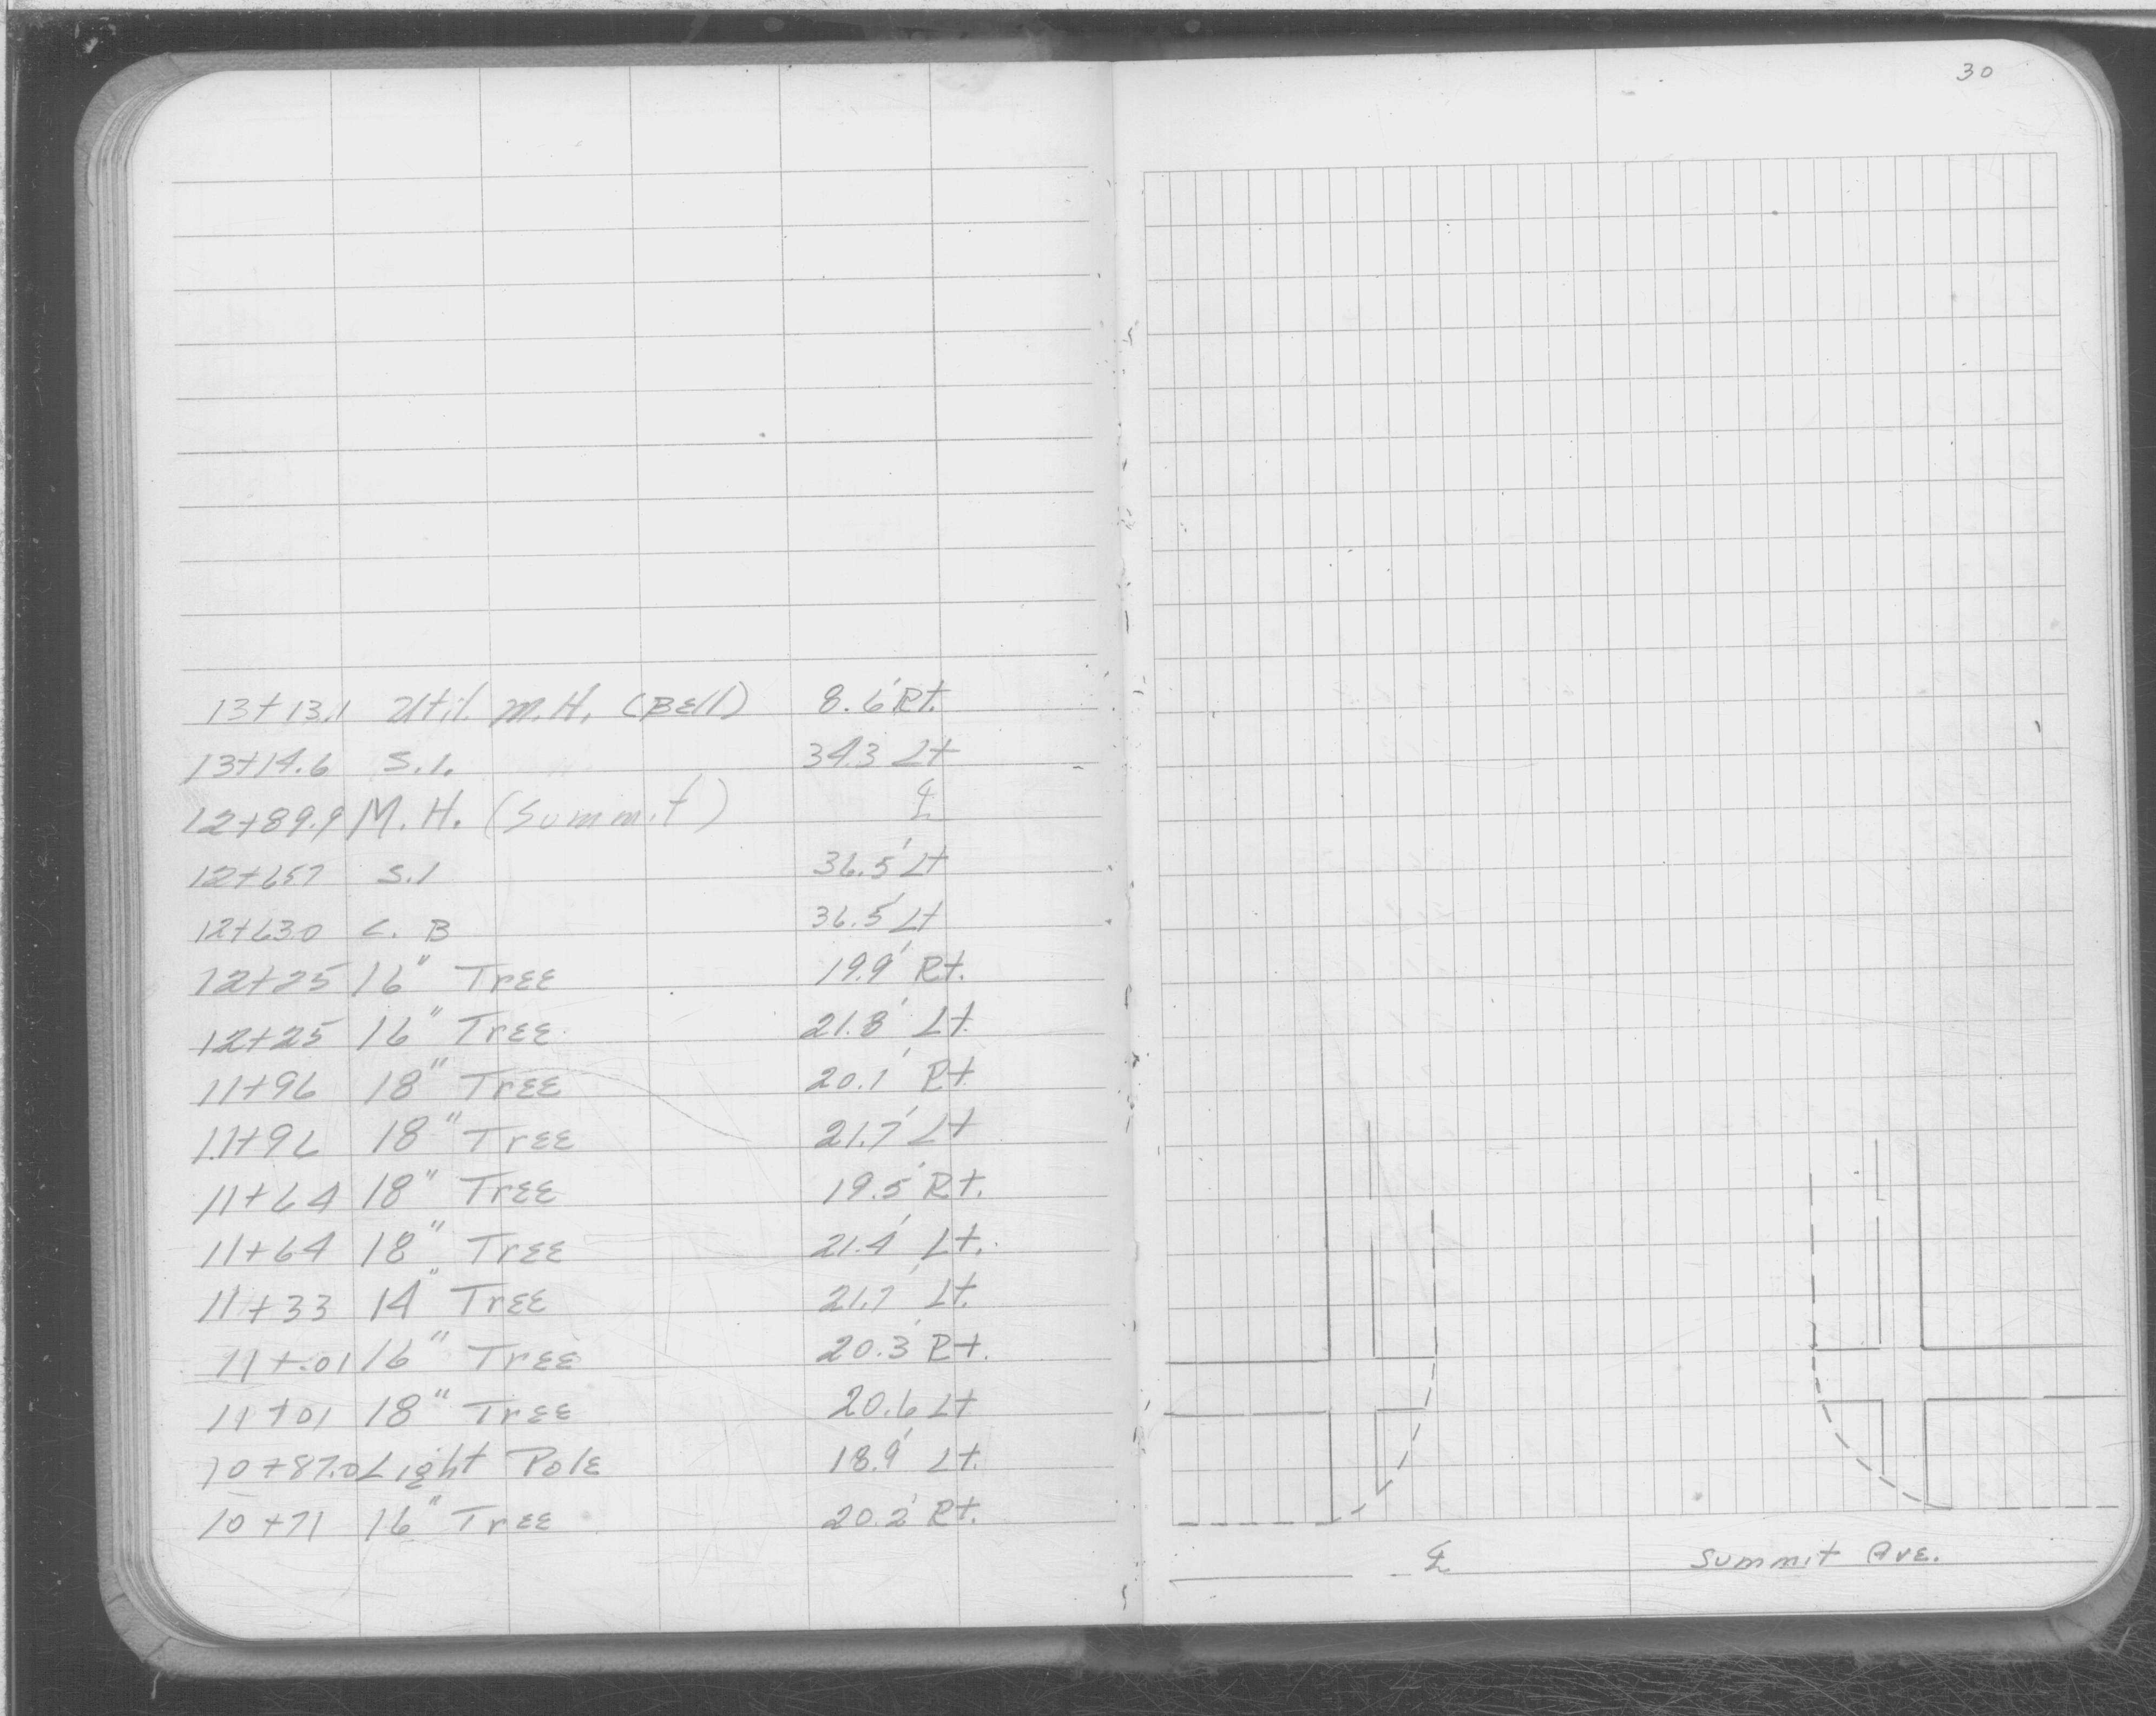 30
13+13.1 Util. M.H. (Bell) 8.6' Rt.
13+14.6 S.I. 34.3 Lt
12+89.9 M.H. (Summit) ℄
12+65.7 S.I 36.5' Lt
12+63.0 C. B 36.5' Lt
12+25 16" Tree 19.9' Rt.
12+25 16" Tree 21.8' Lt.
11+96 18" Tree 20.1' Rt
11+96 18" Tree 21.7' Lt
11+64 18" Tree 19.5' Rt.
11+64 18" Tree 21.4' Lt.
11+33 14" Tree 21.7' Lt.
11+.01 16" Tree 20.3' Rt.
11+01 18" Tree 20.6 Lt
10+87.0 Light Pole 18.9' Lt.
10+71 16" Tree 20.2' Rt.
℄ Summit Ave.